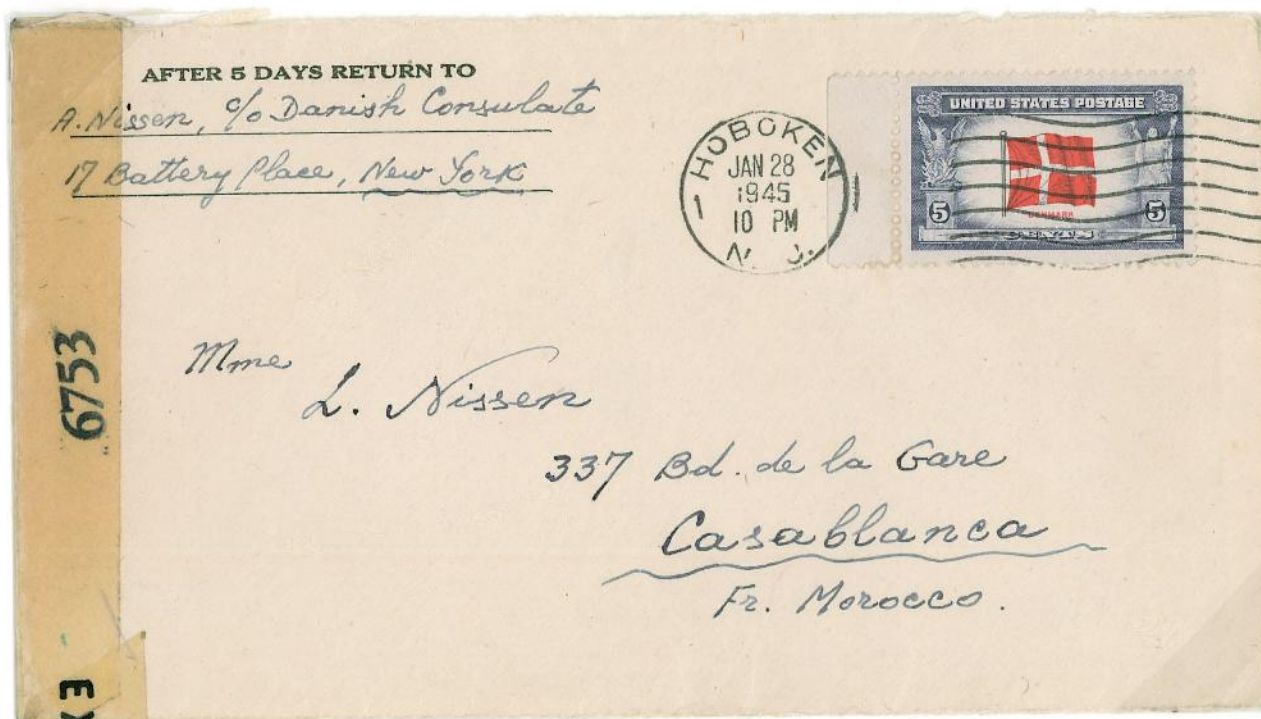 AFTER 5 DAYS RETURN TO
A. Nissen, c/o Danish Consulate
17 Battery Place, New York
HOBOKEN
1
JAN 28
1945
10 PM
N. J.
UNITED STATES POSTAGE
DENMARK
5 5
CENTS
6753
Mme
L. Nissen
337 Bd. de la Gare
Casablanca
Fr. Morocco.